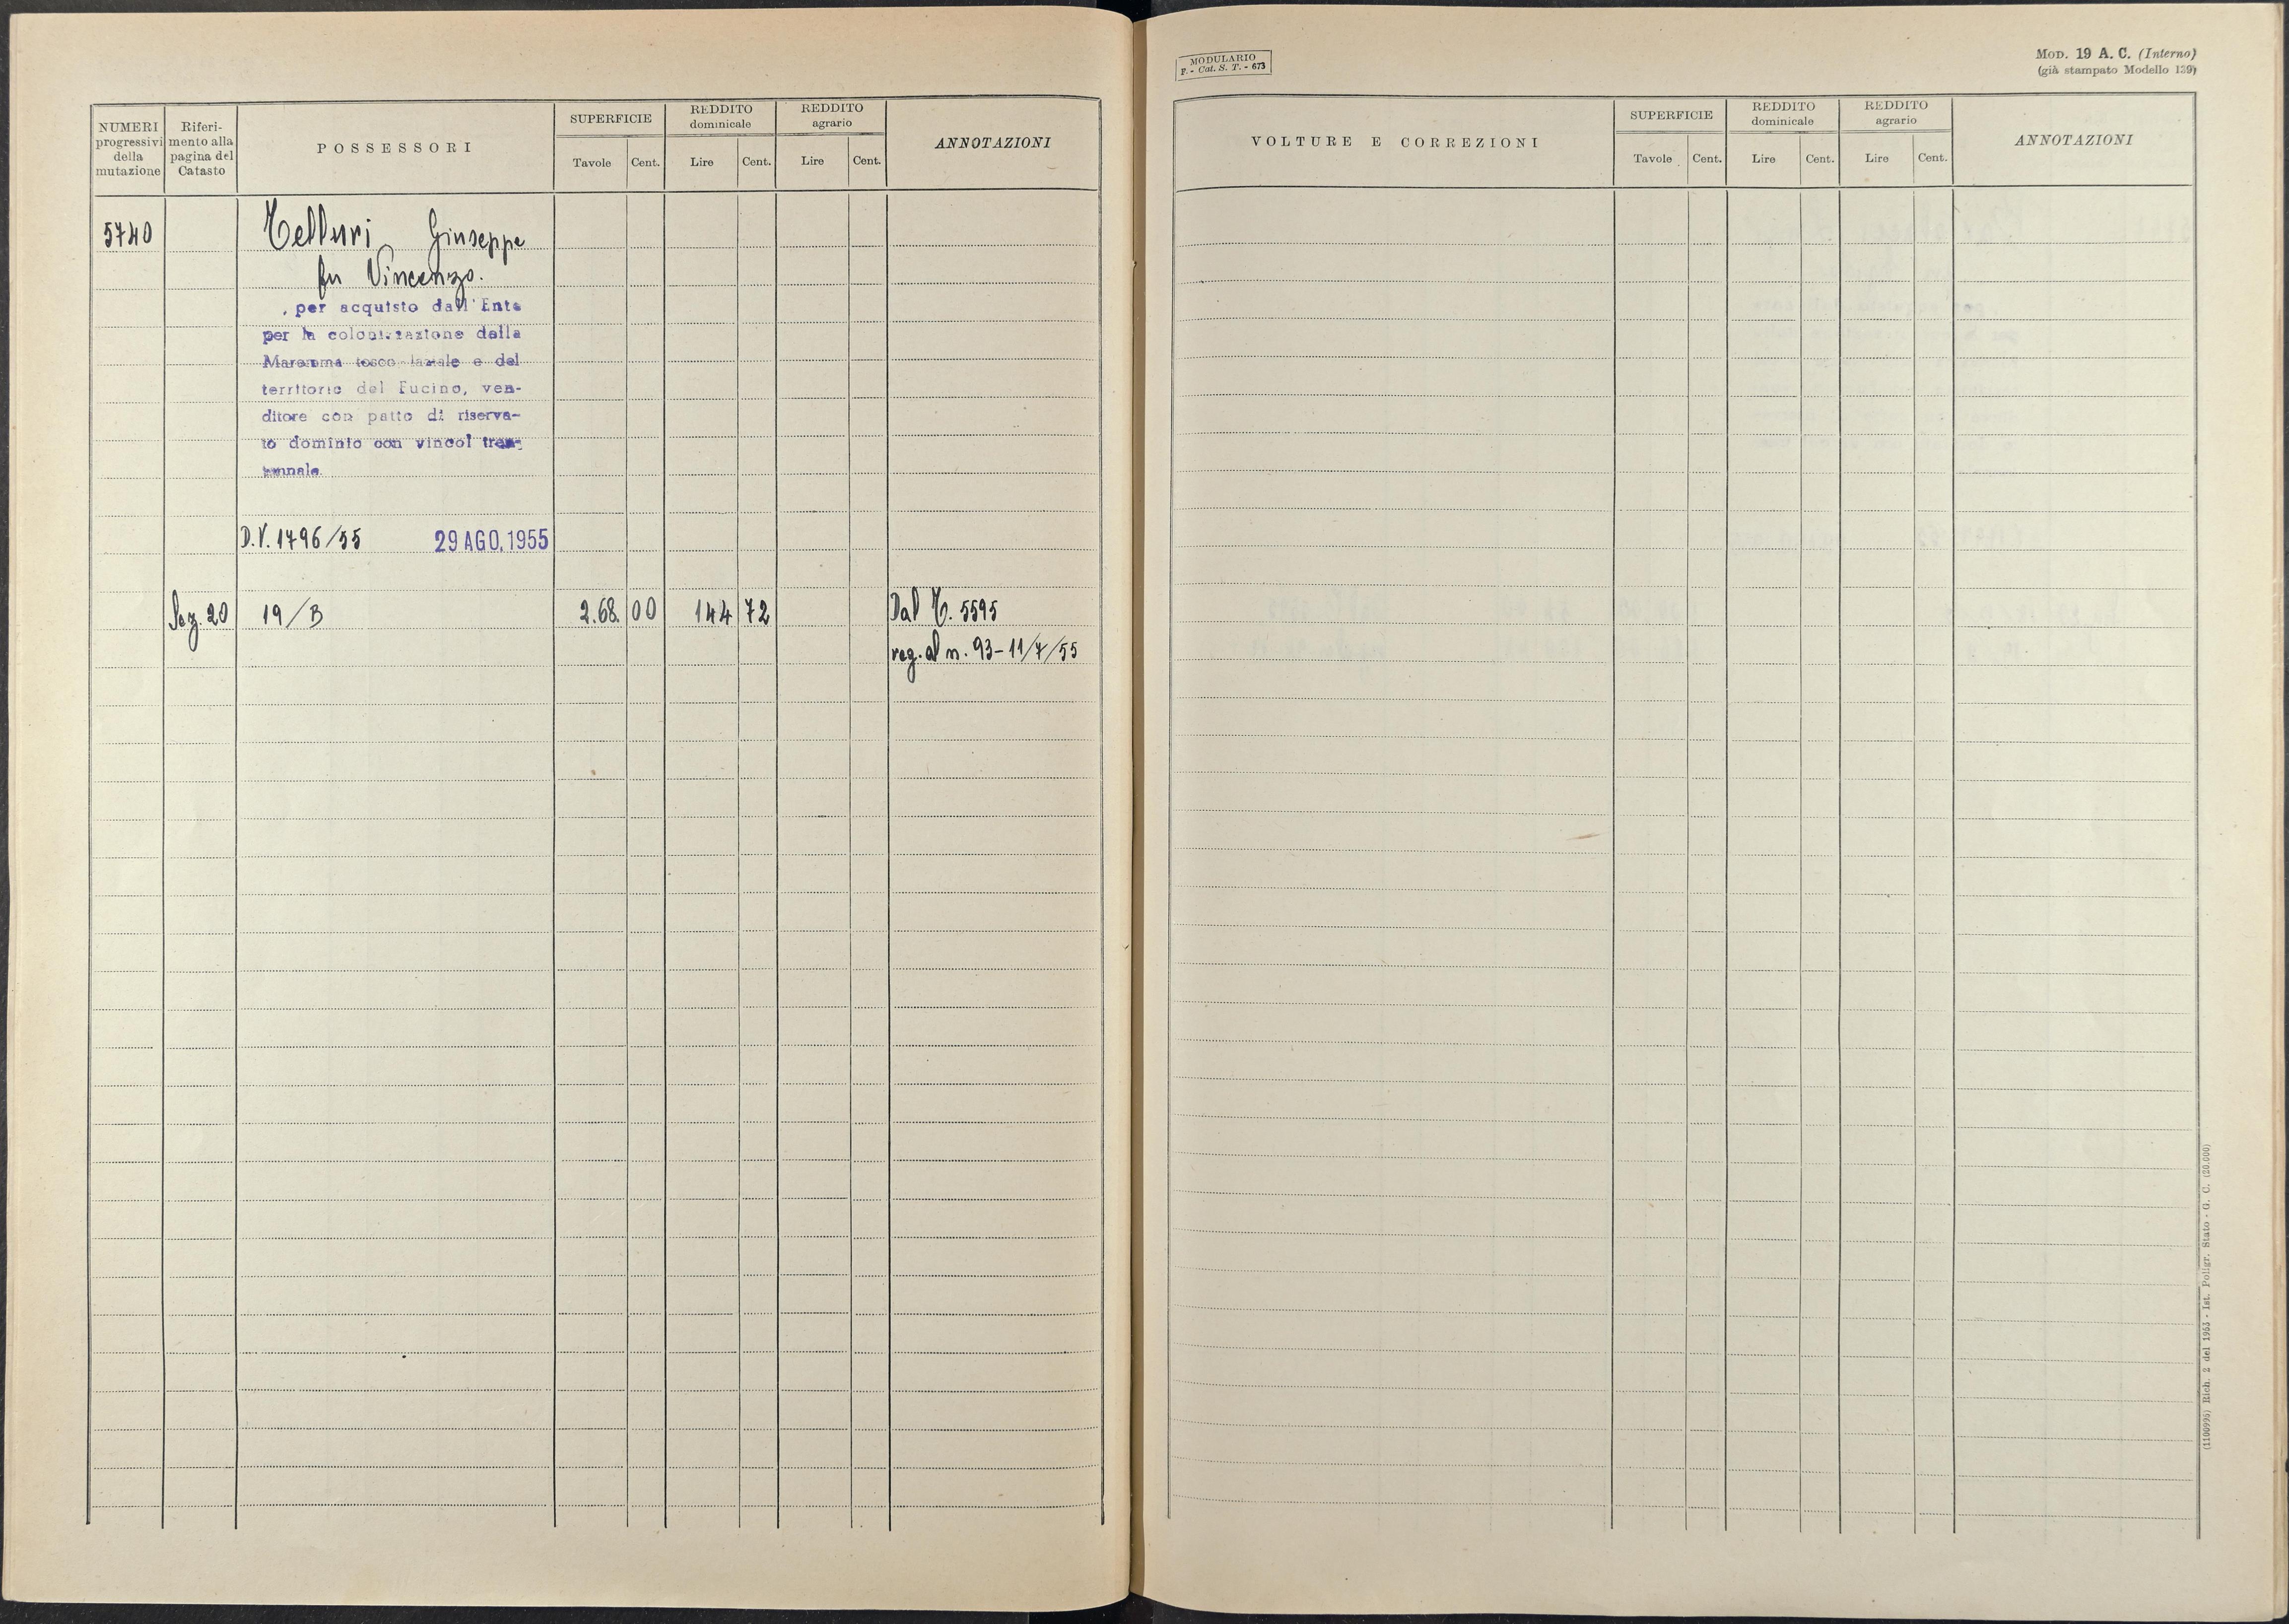 NUMERI progressivi della mutazione
Riferimento alla pagina del Catasto
POSSESSORI
SUPERFICIE
Tavole Cent.
REDDITO dominicale
Lire Cent.
REDDITO agrario
Lire Cent.
ANNOTAZIONI
5740
Telluri Giuseppe
fu Vincenzo.
, per acquisto dall'Ente
per la colonizzazione della
Maremma tosco-laziale e del
territorio del Fucino, ven-
ditore con patto di riserva-
to dominio con vincol tren-
tennale
D.V. 1796/55 29 AGO. 1955
Sez. 20 19/B 2.68. 00 144 72 Dal T. 5595
reg. al n. 93-11/7/55
MODULARIO
F. - Cat. S. T. - 673
MOD. 19 A. C. (Interno)
(già stampato Modello 139)
VOLTURE E CORREZIONI
SUPERFICIE
Tavole Cent.
REDDITO dominicale
Lire Cent.
REDDITO agrario
Lire Cent.
ANNOTAZIONI
(1100995) Rich. 2 del 1953 - Ist. Poligr. Stato - G. C. (20.000)